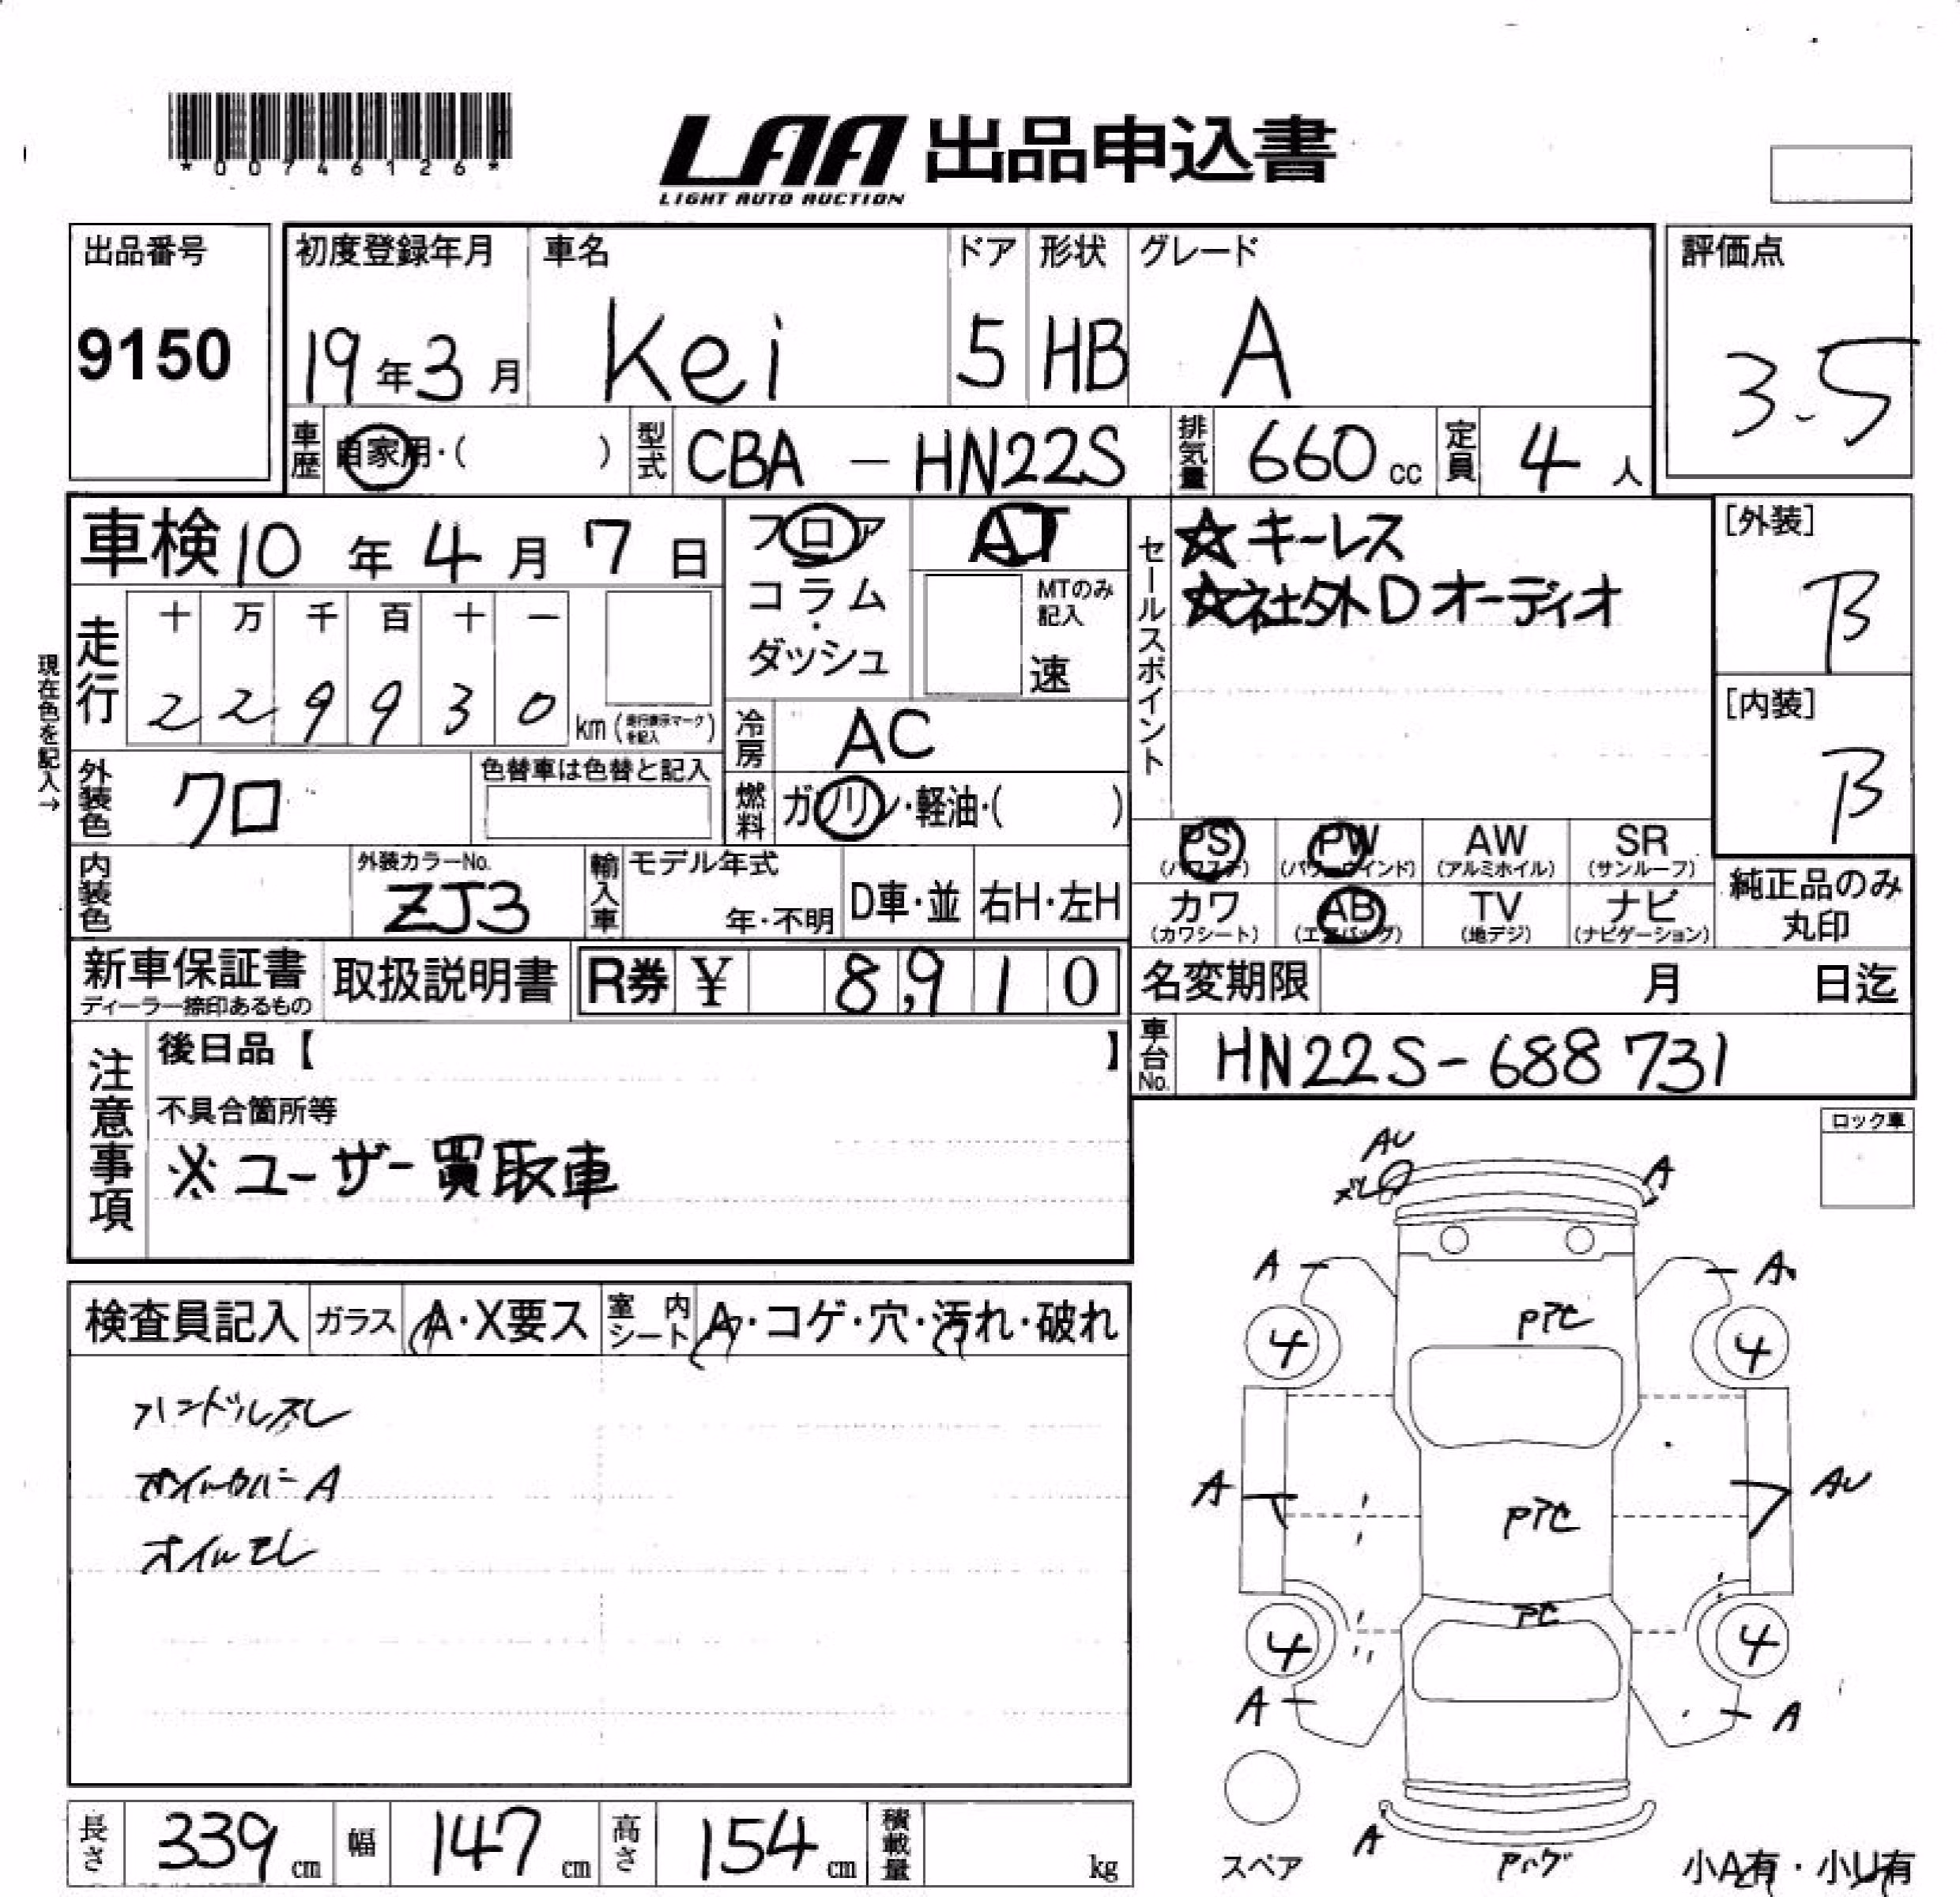 *00746126*
LAA 出品申込書
LIGHT AUTO AUCTION
出品番号
9150
初度登録年月
19年3月
車名
Kei
ドア
5
形状
HB
グレード
A
評価点
3.5
車歴
自家用・( )
型式
CBA - HN22S
排気量
660 cc
定員
4 人
車検 10年 4月 7日
フロア
コラム
・
ダッシュ
AT
MTのみ
記入
速
セールスポイント
☆キーレス
☆社外Dオーディオ
[外装]
B
[内装]
B
現在色を記入→
走行
十 万 千 百 十 一
2 2 9 9 3 0
km (走行表示マークを記入)
冷房
AC
外装色
クロ
色替車は色替と記入
燃料
ガソリン・軽油・( )
PS
(パワステ)
PW
(パワーウインド)
AW
(アルミホイル)
SR
(サンルーフ)
カワ
(カワシート)
AB
(エアバッグ)
TV
(地デジ)
ナビ
(ナビゲーション)
純正品のみ
丸印
内装色
外装カラーNo.
ZJ3
輸入車
モデル年式
年・不明
D車・並
右H・左H
新車保証書
ディーラー捺印あるもの
取扱説明書
R券 ¥ 8,910
名変期限 月 日迄
車台No.
HN22S-688731
注意事項
後日品【 】
不具合箇所等
※ユーザー買取車
ロック車
AU
ズレ
A
A
A
4
PTC
4
A
PTC
AU
PC
4
4
A
A
A
スペア
小A有・小U有
検査員記入
ガラス
A・X要ス
室内
シート
A・コゲ・穴・汚れ・破れ
ハンドルスレ
A
長さ
339 cm
幅
147 cm
高さ
154 cm
積載量
kg